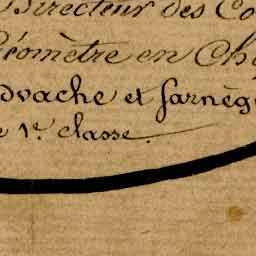 Directeur des Co
Géomètre en Che
dvache et farnèg
e 1e. classe.